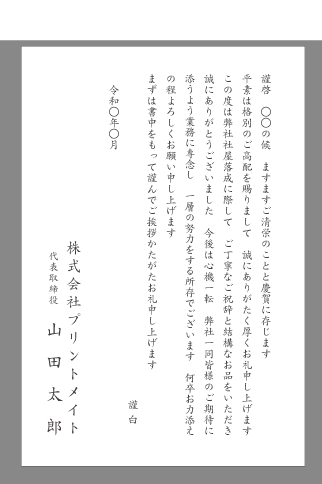 謹啓　〇〇の候　ますますご清栄のことと慶賀に存じます
平素は格別のご高配を賜りまして　誠にありがたく厚くお礼申し上げます
この度は弊社社屋落成に際して　ご丁寧なご祝辞と結構なお品をいただき
誠にありがとうございました　今後は心機一転　弊社一同皆様のご期待に
添うよう業務に専念し　一層の努力をする所存でございます　何卒お力添え
の程よろしくお願い申し上げます
まずは書中をもって謹んでご挨拶かたがたお礼申し上げます
謹白
令和〇年〇月
株式会社プリントメイト
代表取締役　山田太郎